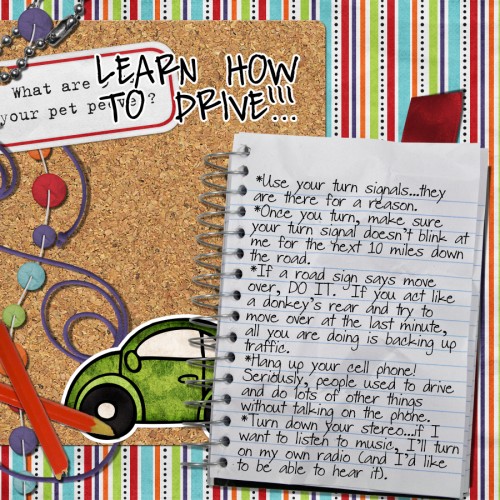 What are
your pet peeves?
LEARN HOW
TO DRIVE!!!
*Use your turn signals...they
are there for a reason.
*Once you turn, make sure
your turn signal doesn't blink at
me for the next 10 miles down
the road.
*If a road sign says move
over, DO IT. If you act like
a donkey's rear and try to
move over at the last minute,
all you are doing is backing up
traffic.
*Hang up your cell phone!
Seriously, people used to drive
and do lots of other things
without talking on the phone.
*Turn down your stereo...if I
want to listen to music, I'll turn
on my own radio (and I'd like
to be able to hear it).